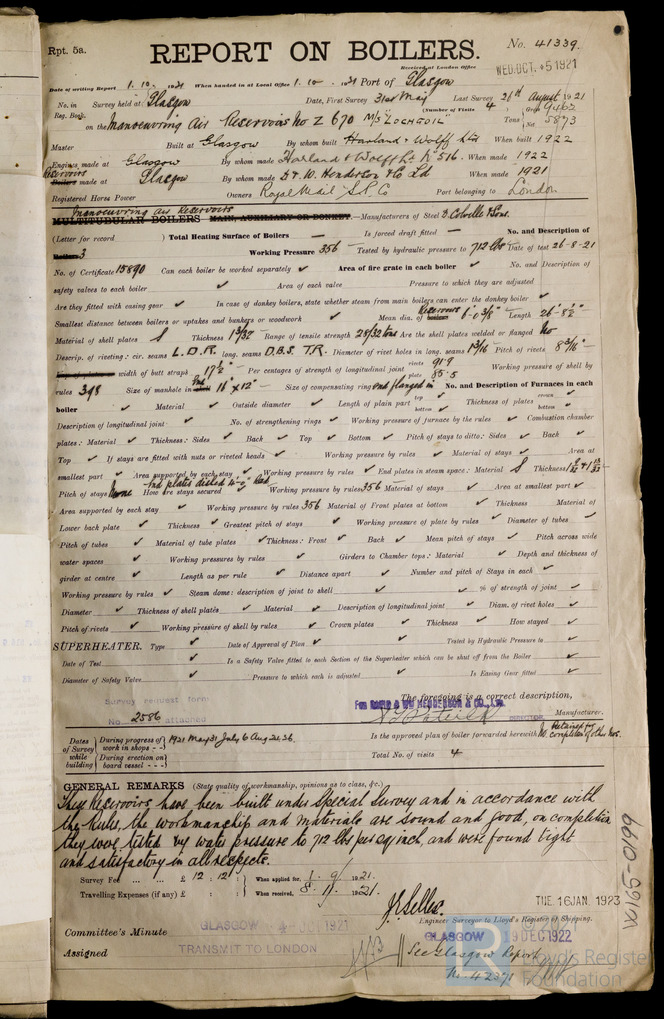 Rpt. 5a.
REPORT ON BOILERS.
No. 41339
Received at London Office
WED. OCT. 5 1921
Date of writing Report 1. 10. 1921 When handed in at Local Office 1. 10. 21 Port of Glasgow
No. in Survey held at Glasgow Date, First Survey 31st May Last Survey 26th August 1921
Reg. Book. (Number of Visits 4 Gross
on the Manoeuvring Air Reservoirs No Z 670 M/S "LOCHGOIL" Tons Net 5873
Master Built at Glasgow By whom built Harland & Wolff Ltd When built 1922
Engines made at Glasgow By whom made Harland & Wolff Ltd No 516. When made 1922
Reservoirs
Boilers made at Glasgow By whom made D & W. Henderson & Co Ld When made 1921
Registered Horse Power Owners Royal Mail S.P. Co Port belonging to London
Manoeuvring Air Reservoirs
MULTITUBULAR BOILERS MAIN, AUXILIARY OR DONKEY.—Manufacturers of Steel D. Colville & Sons.
(Letter for record ) Total Heating Surface of Boilers — Is forced draft fitted — No. and Description of
Boilers 3 Working Pressure 356 Tested by hydraulic pressure to 712 lbs Date of test 26-8-21
No. of Certificate 15890 Can each boiler be worked separately ✓ Area of fire grate in each boiler ✓ No. and Description of
safety valves to each boiler ✓ Area of each valve Pressure to which they are adjusted
Are they fitted with easing gear ✓ In case of donkey boilers, state whether steam from main boilers can enter the donkey boiler ✓
Smallest distance between boilers or uptakes and bunkers or woodwork ✓ Mean dia. of Reservoirs boilers 6'-0 3/8" Length 26'-8½"
Material of shell plates S Thickness 1 3/32 Range of tensile strength 28/32 tons Are the shell plates welded or flanged No
Descrip. of riveting: cir. seams L.D.R. long. seams D.B.S. T.R. Diameter of rivet holes in long. seams 1 3/16 Pitch of rivets 8 3/16"
width of butt straps 17½" Per centages of strength of longitudinal joint rivets 91.9 plate 85.5 Working pressure of shell by
rules 398 Size of manhole in End shell 16" x 12" Size of compensating ring End flanged in No. and Description of Furnaces in each
boiler ✓ Material ✓ Outside diameter ✓ Length of plain part top ✓ bottom ✓ Thickness of plates crown ✓ bottom ✓
Description of longitudinal joint ✓ No. of strengthening rings ✓ Working pressure of furnace by the rules ✓ Combustion chamber
plates: Material ✓ Thickness: Sides ✓ Back ✓ Top ✓ Bottom ✓ Pitch of stays to ditto: Sides ✓ Back ✓
Top ✓ If stays are fitted with nuts or riveted heads ✓ Working pressure by rules ✓ Material of stays ✓ Area at
smallest part ✓ Area supported by each stay ✓ Working pressure by rules ✓ End plates in steam space: Material S Thickness
Pitch of stays None How are stays secured End plates dished Rad. Working pressure by rules 356 Material of stays ✓ Area at smallest part ✓
Area supported by each stay ✓ Working pressure by rules 356 Material of Front plates at bottom ✓ Thickness Material of
Lower back plate ✓ Thickness ✓ Greatest pitch of stays ✓ Working pressure of plate by rules ✓ Diameter of tubes ✓
Pitch of tubes ✓ Material of tube plates ✓ Thickness: Front ✓ Back ✓ Mean pitch of stays ✓ Pitch across wide
water spaces ✓ Working pressures by rules ✓ Girders to Chamber tops: Material ✓ Depth and thickness of
girder at centre ✓ Length as per rule ✓ Distance apart ✓ Number and pitch of Stays in each ✓
Working pressure by rules ✓ Steam dome: description of joint to shell ✓ ✓ % of strength of joint ✓
Diameter ✓ Thickness of shell plates ✓ Material ✓ Description of longitudinal joint ✓ Diam. of rivet holes ✓
Pitch of rivets ✓ Working pressure of shell by rules ✓ Crown plates ✓ Thickness ✓ How stayed ✓
SUPERHEATER. Type ✓ Date of Approval of Plan ✓ ✓ Tested by Hydraulic Pressure to ✓
Date of Test ✓ Is a Safety Valve fitted to each Section of the Superheater which can be shut off from the Boiler ✓
Diameter of Safety Valve ✓ Pressure to which each is adjusted ✓ Is Easing Gear fitted ✓
The foregoing is a correct description,
Survey request form
No. 2586 attached
FOR DAVID & WM HENDERSON & CO., LTD.
DIRECTOR Manufacturer.
Dates of Survey while building During progress of work in shops - - 1921 May 31 July 6 Aug 22. 26.
During erection on board vessel - - -
Is the approved plan of boiler forwarded herewith No. Retained for completion of other Nos.
Total No. of visits 4
GENERAL REMARKS (State quality of workmanship, opinions as to class, &c.)
They Reservoirs have been built under Special Survey and in accordance with
the Rules, the workmanship and materials are sound and good, on completion
they were tested by water pressure to 712 lbs per sq inch, and were found tight
and satisfactory in all respects.
Survey Fee ... ... £ 12 : 12 : When applied for, 1. 9. 1921.
Travelling Expenses (if any) £ : : When received, 8. 11. 1921.
TUE. 16 JAN. 1923
Engineer Surveyor to Lloyd's Register of Shipping.
Committee's Minute GLASGOW 4 - OCT 1921
GLASGOW 19 DEC 1922
Assigned TRANSMIT TO LONDON
See Glasgow Report
No. 42371
W165-0199
Lloyd's Register
Foundation